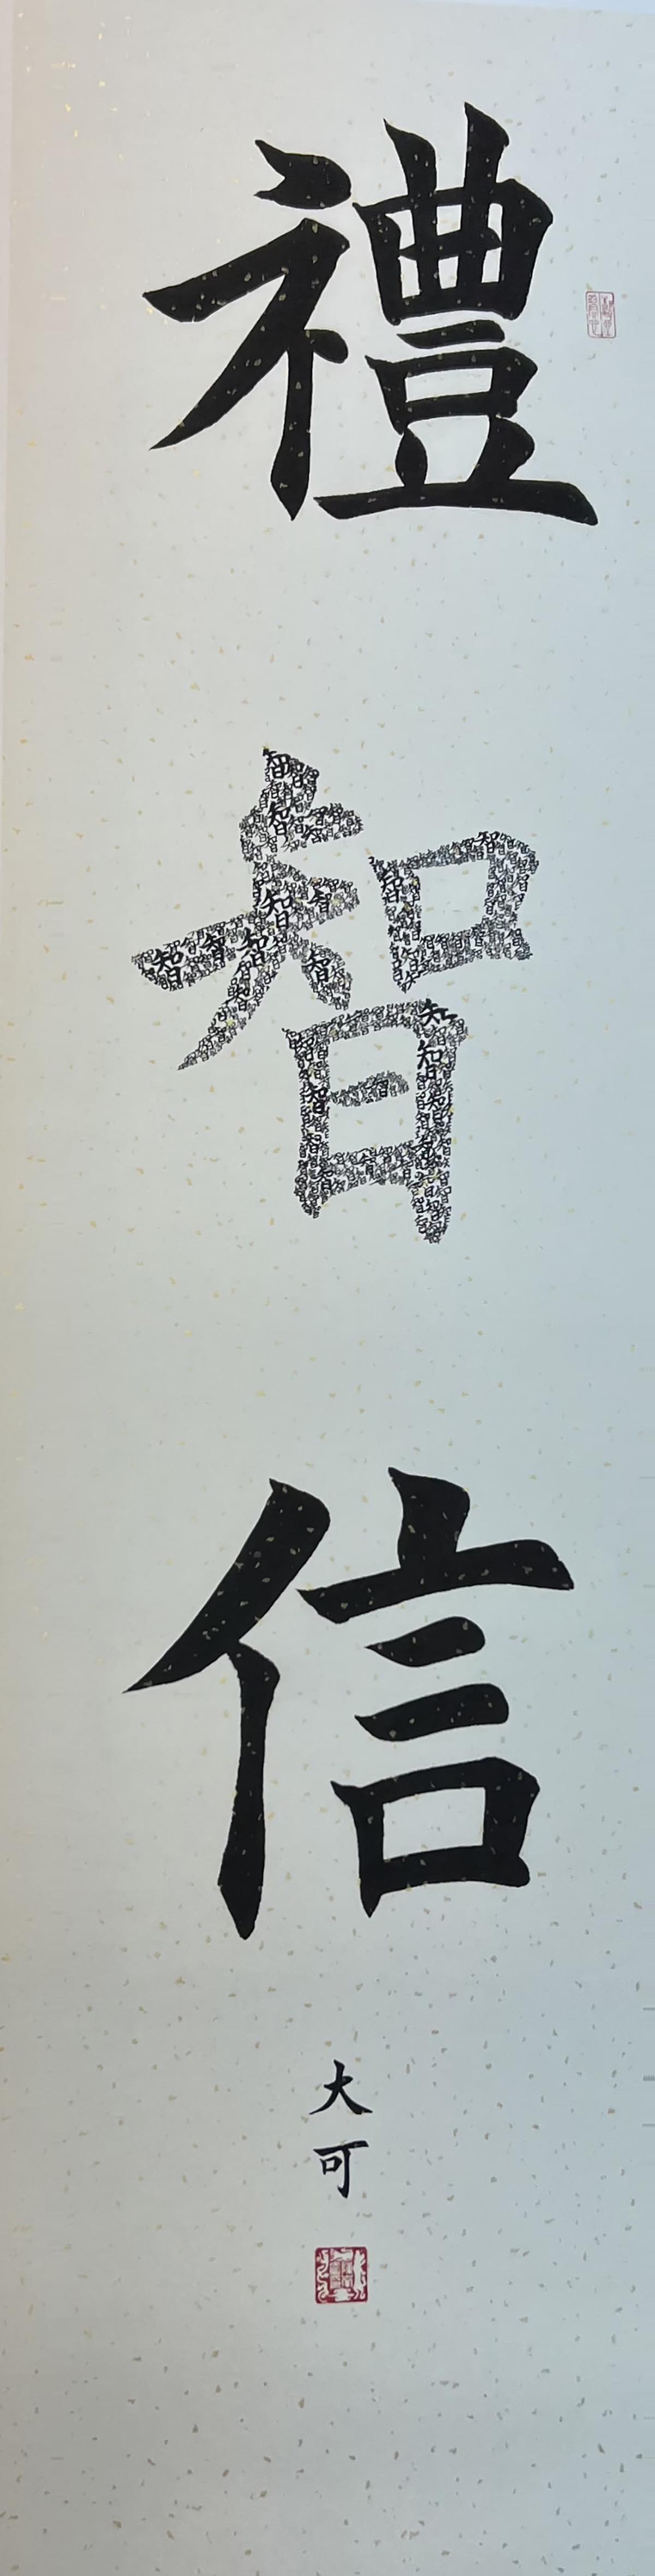 禮
智
信
大
可